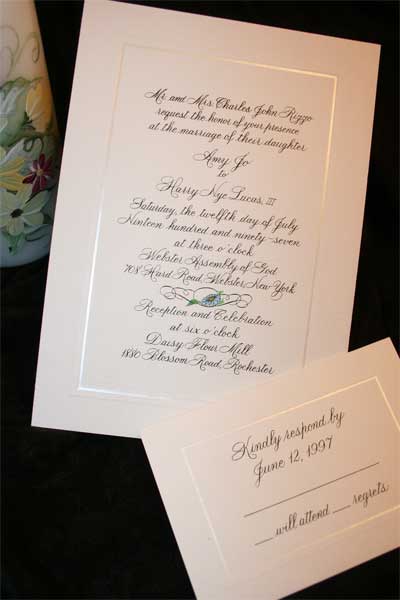 Mr. and Mrs. Charles John Rizzo
request the honor of your presence
at the marriage of their daughter
Amy Jo
to
Harry Nye Lucas, III
Saturday, the twelfth day of July
Nineteen hundred and ninety-seven
at three o'clock
Webster Assembly of God
708 Hard Road, Webster, New York
Reception and Celebration
at six o'clock
Daisy Flour Mill
1880 Blossom Road, Rochester
Kindly respond by
June 12, 1997
__ will attend __ regrets